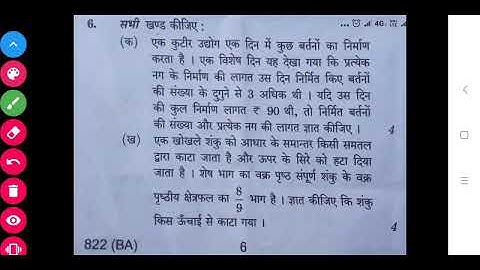 ... 4G
6. सभी खण्ड कीजिए :
(क) एक कुटीर उद्योग एक दिन में कुछ बर्तनों का निर्माण
करता है । एक विशेष दिन यह देखा गया कि प्रत्येक
नग के निर्माण की लागत उस दिन निर्मित किए बर्तनों
की संख्या के दुगुने से 3 अधिक थी । यदि उस दिन
की कुल निर्माण लागत ₹ 90 थी, तो निर्मित बर्तनों
की संख्या और प्रत्येक नग की लागत ज्ञात कीजिए । 4
(ख) एक खोखले शंकु को आधार के समान्तर किसी समतल
द्वारा काटा जाता है और ऊपर के सिरे को हटा दिया
जाता है । शेष भाग का वक्र पृष्ठ संपूर्ण शंकु के वक्र
पृष्ठीय क्षेत्रफल का 8/9 भाग है । ज्ञात कीजिए कि शंकु
किस ऊँचाई से काटा गया । 4
822 (BA) 6